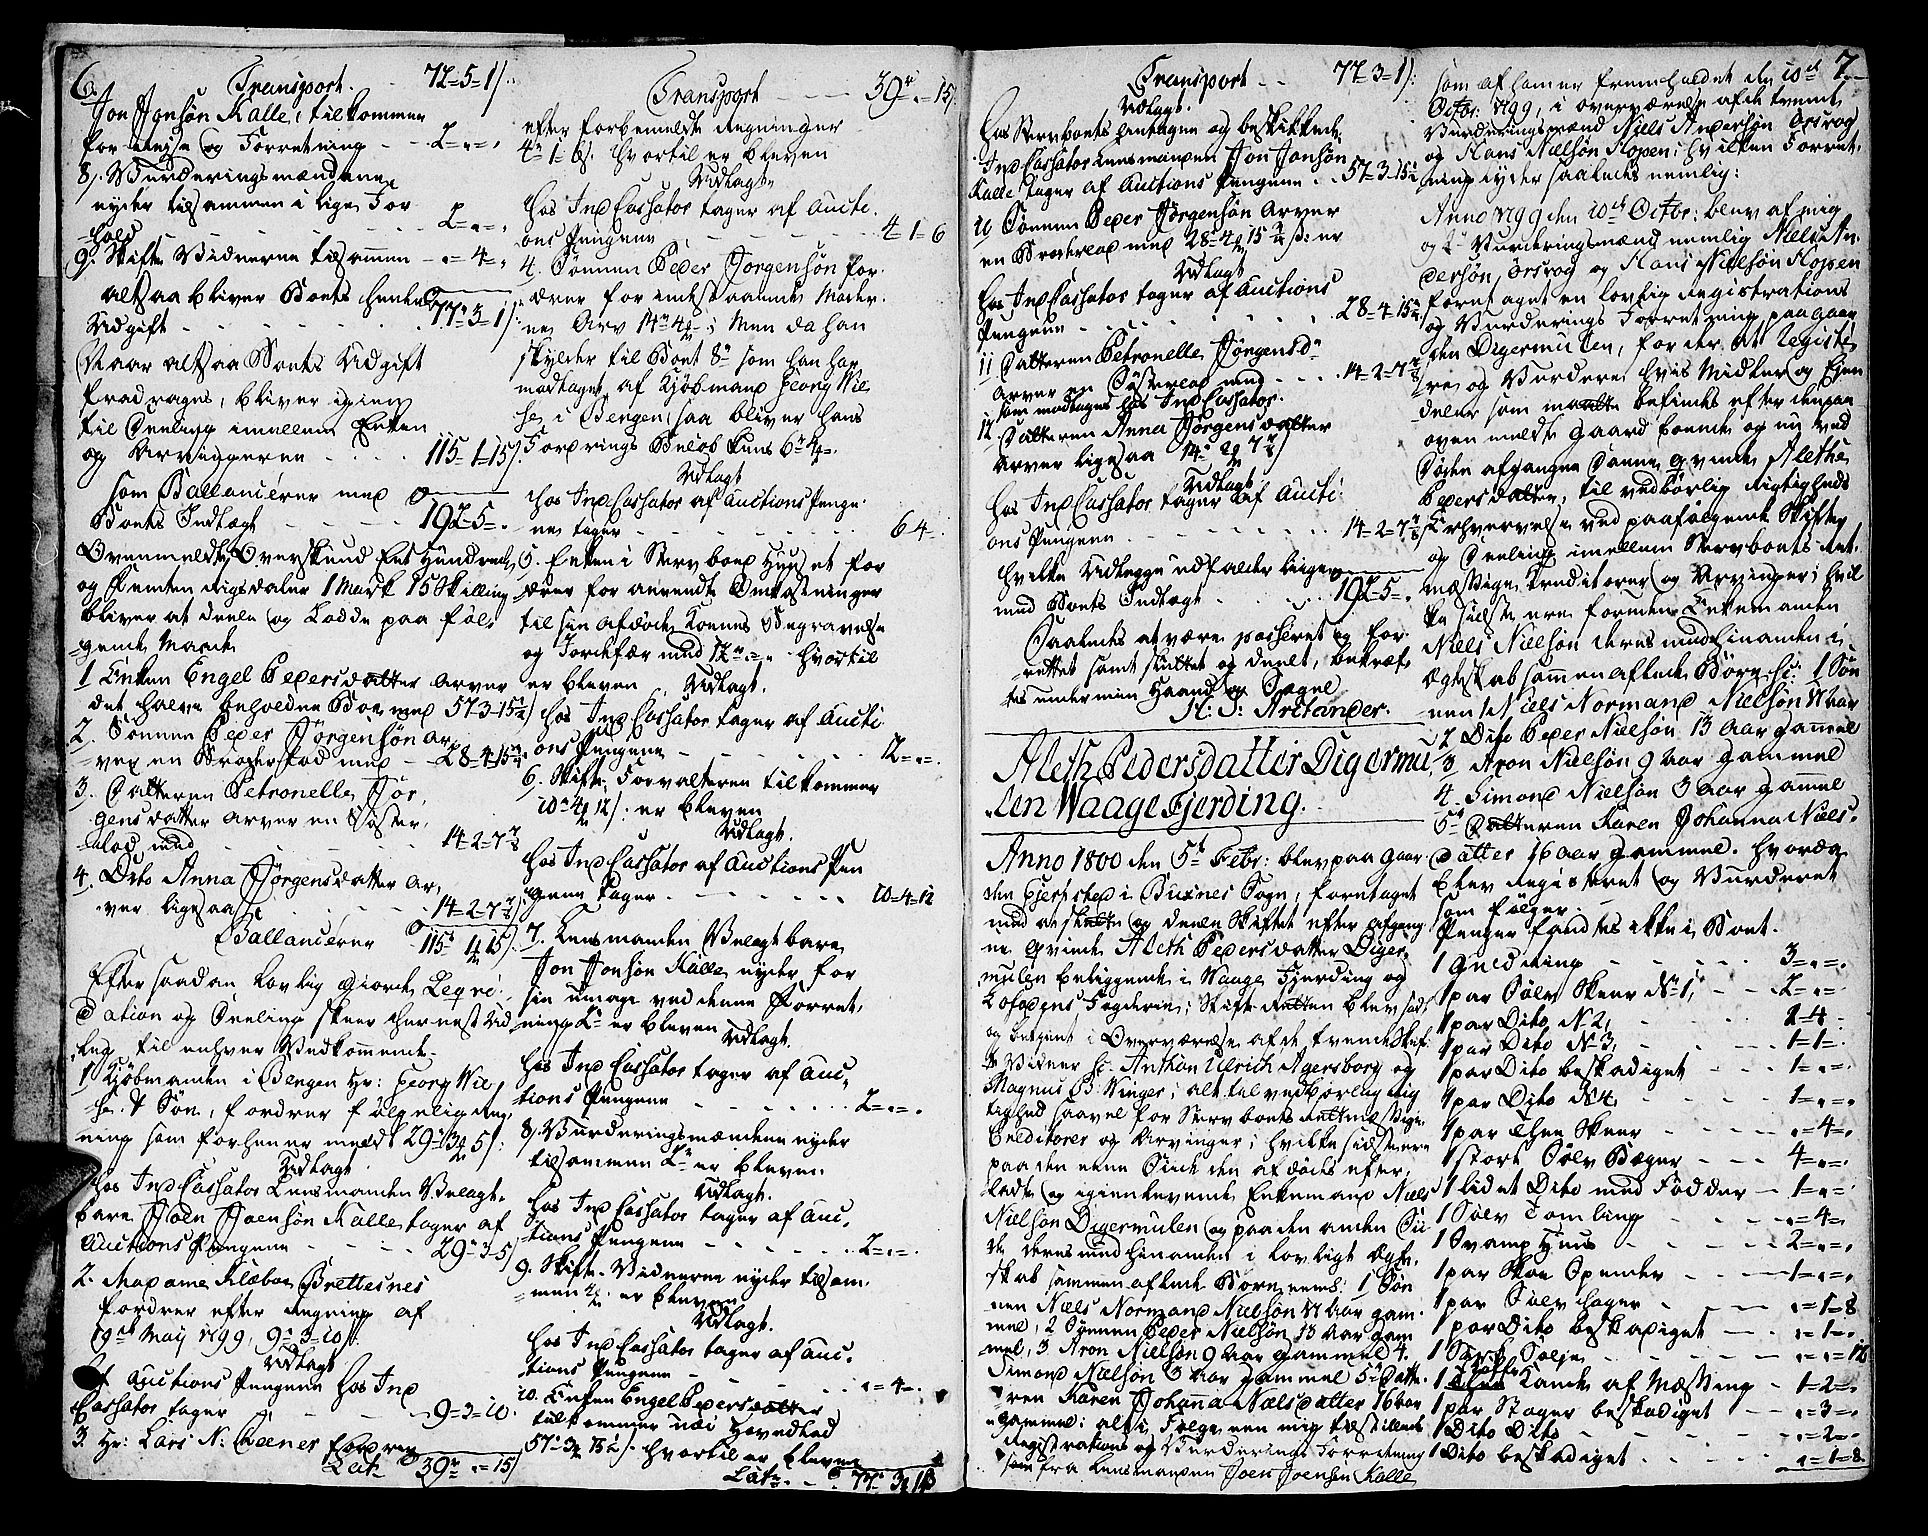 6.
Transport. - 77=5=1/:
Jon Jonsøn Kalle, tilkommer
for Reyse og Forretning - - 2=„=„
8/. Vurderingsmændene
nyder tilsammen i lige For
hold - - - 2=„=„
9. Skifte Vidnerne tilsammen - „=4=„
altsaa bliver Boets heele
Udgift - - - 77„3=1/:
Naar altsaa Boets Udgift
fradrages, bliver igien
til Deeling imellem Enken
og Arvingerne - - - 115=1=15/.
som Ballancerer med
Boets Indtægt - - - 192=5=„
Ovenmeldte Overskud Eet Hundrede
og Femten Rigsdaler 1 Mark 15 Skilling
bliver at deele og Lodde paa føl-
gende Maade
1 Enken Engel Pedersdatter arver
det halve beholdne Boe med 57 3=15½
2. Sønnen Peder Jørgensøn ar,
ver en Broderlod med - - 28=4=15¾
3. Datteren Petronelle Jør,
gensdatter arver en Søster,
lod med - - - 14=2=7⅞
4. Dito Anna Jørgensdatter ar,
ver ligesaa - - - 14=2=7⅞
Ballancerer 115„ 1=15/.
Efter saadan lovlig giorde Leqvi,
dation og Deeling skeer hernest Ud
læg til enhver Vedkommende.
1 Kiøbmanden i Bergen Hr: Georg Wil
he. & Søn, fordrer følgelig Reg,
ning som forhen er meldt 29„ 3 5/:
Udlagt
hos IndCassator Lensmanden Velagt,
bare Joen Joensøn Kalle tager af
Auctions Pengene - - - 29„3=5/
2. Madame Klæboe Brettesnes
fordrer efter Regning af
19de May 1799, 9„3=10/.
Udlagt
af Auctions Pengene hos Ind
Cassator tager - - - 9=3=10.
3. Hr: Lars N: Cheener fordrer
Lat. 39„ „=15/
Transport - - - 39„ „=15/.
efter forbemeldte Regninger
4„ 1=6/. hvortil er bleven
Udlagt.
hos IndCassator tager af Aucti,
ons Pengene - - - 4 1=6
4. Sønnen Peder Jørgensøn for,
drer for indestaaende Mødre,
ne Arv 14„ 4; Men da han
skylder til Boet 8„ som han har
modtaget af Kjøbmand Georg Wil
he. i Bergen, saa bliver hans
Fordrings Beløb kuns 6„ 4=.
Udlagt
hos IndCassator af Auctions Penge
ne tager - - - 6 4=.
5. Enken i Stervboed Huuset for
drer for anvendte Omkostninger
til sin afdøde Mands Begravelse
og Jordefær med 12„ „=„ hvortil
er bleven Udlagt.
hos IndCassator tager af Aucti
ons Pengene - - - 12=„=.
6. Skifte, Forvalteren tilkommer
10„ 4 12/: er bleven
Udlagt.
hos IndCassator af Auctions Pen
gene tager - - - 10=4=12
7. Lensmanden Velagtbare
Jon Jonsøn Kalle nyder for
sin umage ved denne Forret,
ning 2„ er bleven Udlagt.
hos IndCassator tager af Auc,
tions Pengene - - - 2=„=.
8/. Vurderingsmændene nyder
tilsammen 2„ er bleven
Udlagt.
hos IndCassator tager af Auc,
tions Pengene - - - 2=„=.
9. Skifte. Vidnerne nyder tilsam,
men 4 er bleven
Udlagt.
hos IndCassator tager af Auc,
tions Pengene - - - „=4=.
10. Enken Engel Pedersdatter
tilkommer udi Hovedlod
57„ 3 15½/. hvortil er bleven
Lat. - - 77„ 3 1/
Transport - - 77=3=1/:
Udlagt.
hos Stervboets hentagne og beskikkede
IndCassator Lensmanden Jon Jonsøn
Kalle tager af Auctions Pengene - - 57=3=15½
10 Sønnen Peder Jørgensøn Arver
en Broderlod med 28=4 15¾/: er
Udlagt
hos IndCassator tager af Auctions
Pengene - - - 28=4 15¾
11 Datteren Petronelle Jørgensd„
Arver en Søsterlod med - - - 14=2=7⅞
som modtages hos IndCassator.
12 Datteren Anna Jørgensdatter
Arver ligesaa 14„ 2 7⅞/
Udlagt
hos IndCassator tager af Aucti,
ons Pengene - - - 14=2=7⅞
hvilke Udlægge udfalder liige
med Boets Indtægt - - - 192=5=.
Saaledes at være passeret og for,
rettet samt skiftet og deelt, bekræf,
tes under min Haand og Segel
H: J: Arctander.
Aleth Pedersdatter Digermu
len Waage Fjerding.
Anno 1800 den 5te Febr: blev paa Gaar,
den Gjerstad i Buxnes Sogn, foretaget
med at skifte og deele Skiftet efter afgang,
ne qvinde Aleth Pedersdatter Diger,
mulen beliggende i Waage Fjerding og
Lofodens Fogderie; Skifte Retten blev sat
og betient i Overværelse af de tvende Skif
te Vidner Sr. Anthon Ulrich Agersborg og
Magnus B: Winger; alt til vedbørlig Rig
tighed saavel for Stervboets Retmæssige
Creditorer og Arvinger; hvilke sidste ere
paa den eene Siide den afdødes efter,
ladte og igienlevende Enkemand Niels
Nielsøn Digermulen og paa den anden Si
de deres med hinanden i lovligt Ægte,
skab sammenaflede Børn neml: 1 Søn
nen Niels Normand Nielsøn 17 Aar gam
mel, 2 Sønnen Peder Nielsøn 13 Aar gam
mel, 3 Aron Nielsøn 9 Aar gammel 4.
Simond Nielsøn 3 Aar gammel 5te Datte,
ren Karen Johanna Nielsdatter 16 Aar
gammel; alt i Følge een mig tilstillet
Registrations og Vurderings Forretning
som fra Lensmanden Joen Joensøn Kalle
7.
som af ham er fremholdet den 10de
Octbr: 1799, i overværelse af de tvende
Vurderingsmænd Niels Andersøn Ørsvog
og Hans Nielsøn Hopen; hvilken Forret,
ning lyder saaledes nemlig:
Anno 1799 den 10de Octbr: blev af mig
og 2de Vurderingsmænd nemlig Niels An
dersøn, Ørsvog og Hans Nielsøn Hopen
foretaget en lovlig Registrations
og Vurderings Forretning paa Gaar
den Digermulen, for der at Registe
re, og Vurdere hvis Midler og Eien
deler som maatte befindes efter den paa
ovenmeldte Gaard boende og nu ved
Døden afgangne Danne qvinde Alethe
Pedersdatter, til vedbørlig Rigtigheds
Erhvervelse ved paafølgende Skifte
og Deeling imellem Stervboets Ret,
mæssige Creditorer og Arvinger; hvil
ke sidste ere foruden Enkemanden
Niels Nielsøn deres med hinanden i
Ægteskab sammenaflede Børn Sc: 1 Søn
nen Niels Normand Nielsøn 17 Aar
2 Dito Peder Nielsøn 13 Aar gammel
3 Aron Nielsøn 9 Aar gammel
4. Simond Nielsøn 3 Aar gammel
5te Datteren Karen Johanna Niels.
datter 16 Aar gammel. hvoraf
blev Registeret og Vurderet
som følger.
Penger fandtes ikke i Boet.
1 Guld Ring - - - 3=„=.
1 par Sølv Skeer No 1, - - 2=„=.
1 par Dito No 2, - - - 1=4=.
1 par Dito No 3, - - - 1=1=.
1 par Dito beskadiget - - - 1=„=.
1 par Dito No 4, - - - 1=„=„
1 par Thee Skeer - - - „=4=.
1 stort Sølv Bæger - - - 4=„=.
1 lidet Dito med Fødder - 1=„=.
1 Sølv Tomling - - - „=4=.
1 Svamp Huus - - - 2=„=.
1 par Skoe Spender - - - 1=„=.
1 par Sølv Hager - - - „=1=8
1 par Dito beskadiget - - - „=1=.
1 Sølje - - - „=„=12
1 Kande af Messing - 1=2=.
1 par Stager beskadiget - - „=3=.
1 Dito Dito - - - „=2=.
1 Dito beskadiget - - - „=1=8.